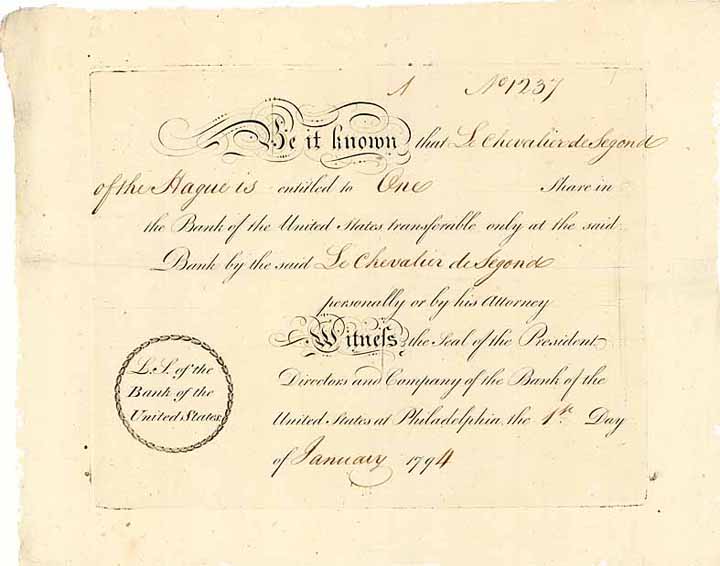 1 No 1237
Be it known that Le Chevalier de Segond
of the Hague is entitled to One Share in
the Bank of the United States transferable only at the said
Bank by the said Le Chevalier de Segond
personally or by his Attorney
Witneſs the Seal of the President
Directors and Company of the Bank of the
United States at Philadelphia the 1st Day
of January 1794
L.S. of the
Bank of the
United States